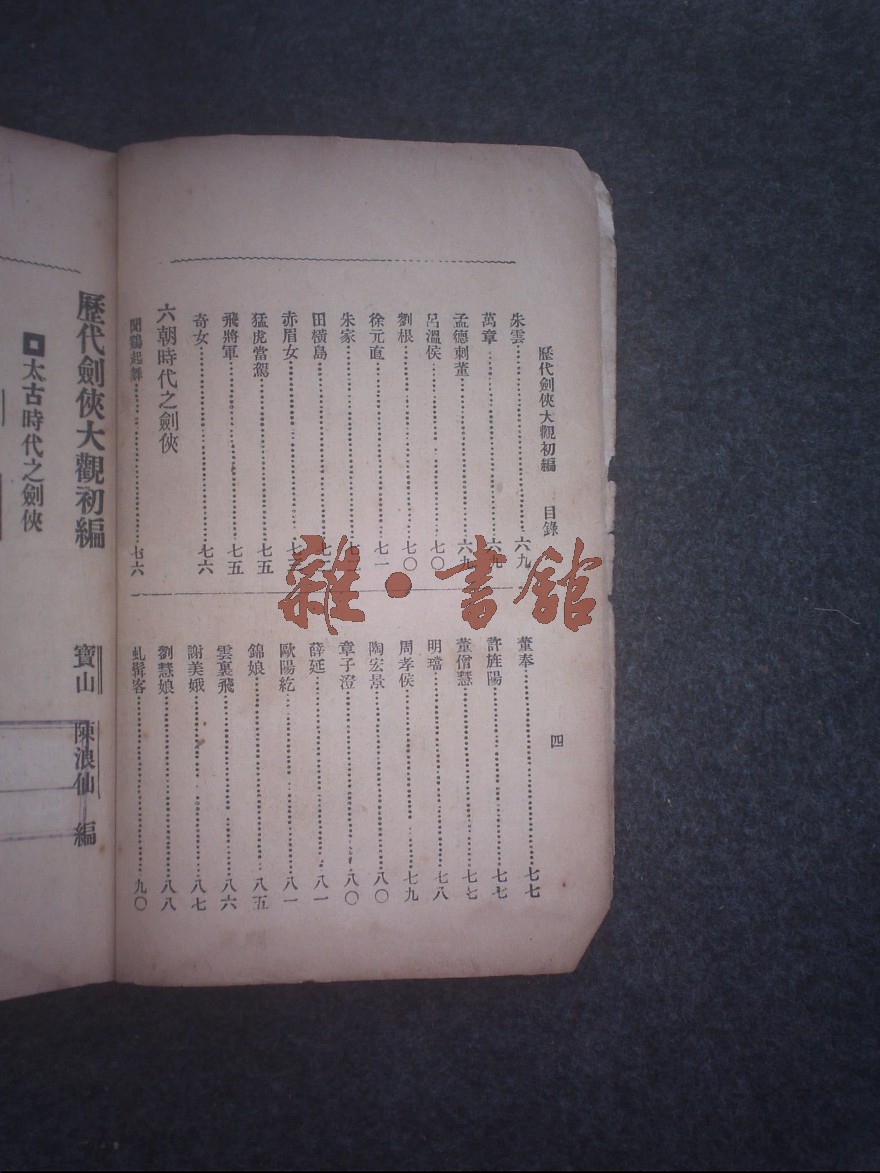 歷代劍俠大觀初編 目錄 四
朱雲 六九
萬章 六九
孟德刺董 六九
呂溫侯 七〇
劉根 七〇
徐元直 七一
朱家
田橫島
赤眉女
猛虎當駕 七五
飛將軍 七五
奇女 七六
六朝時代之劍俠
聞鷄起舞 七六
董奉 七七
許旌陽 七七
董僧慧 七七
明璫 七八
周孝侯 七九
陶宏景 八〇
章子澄 八〇
薛延 八一
歐陽紇 八一
錦娘 八五
雲裏飛 八六
謝美娥 八七
劉慧娘 八八
虬髯客 九〇
歷代劍俠大觀初編
寶山 陳浪仙 編
太古時代之劍俠
雜·書館